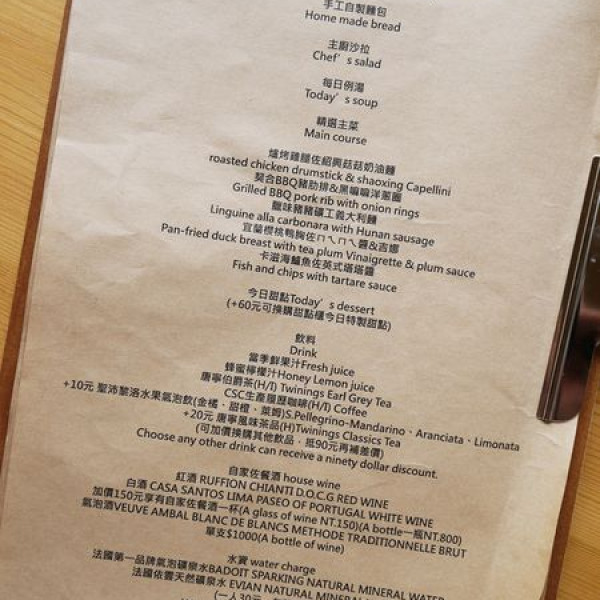 手工自製麵包
Home made bread
主廚沙拉
Chef's salad
每日例湯
Today's soup
精選主菜
Main course
爐烤雞腿佐紹興菇菇奶油麵
roasted chicken drumstick & shaoxing Capellini
契合BBQ豬肋排&黑嘛嘛洋蔥圈
Grilled BBQ pork rib with onion rings
臘味豬豬礦工義大利麵
Linguine alla carbonara with Hunan sausage
宜蘭櫻桃鴨胸佐ㄇㄟㄇㄟ醬&吉娜
Pan-fried duck breast with tea plum Vinaigrette & plum sauce
卡滋海鱺魚佐英式塔塔醬
Fish and chips with tartare sauce
今日甜點Today's dessert
(+60元可換購甜點櫃今日特製甜點)
飲料
Drink
當季鮮果汁Fresh juice
蜂蜜檸檬汁Honey Lemon juice
唐寧伯爵茶(H/I) Twinings Earl Grey Tea
CSC生產履歷咖啡(H/I) Coffee
+10元 聖沛黎洛水果氣泡飲(金橘、甜橙、萊姆)S.Pellegrino-Mandarino、Aranciata、Limonata
+20元 唐寧風味茶品(H)Twinings Classics Tea
(可加價換購其他飲品，抵90元再補差價)
Choose any other drink can receive a ninety dollar discount.
自家佐餐酒 house wine
紅酒 RUFFION CHIANTI D.O.C.G RED WINE
白酒 CASA SANTOS LIMA PASEO OF PORTUGAL WHITE WINE
加價150元享有自家佐餐酒一杯(A glass of wine NT.150)(A bottle一瓶NT.800)
氣泡酒VEUVE AMBAL BLANC DE BLANCS METHODE TRADITIONNELLE BRUT
單支$1000(A bottle of wine)
水資 water charge
法國第一品牌氣泡礦泉水BADOIT SPARKING NATURAL MINERAL WATER
法國依雲天然礦泉水 EVIAN NATURAL MINERAL
(一人30元